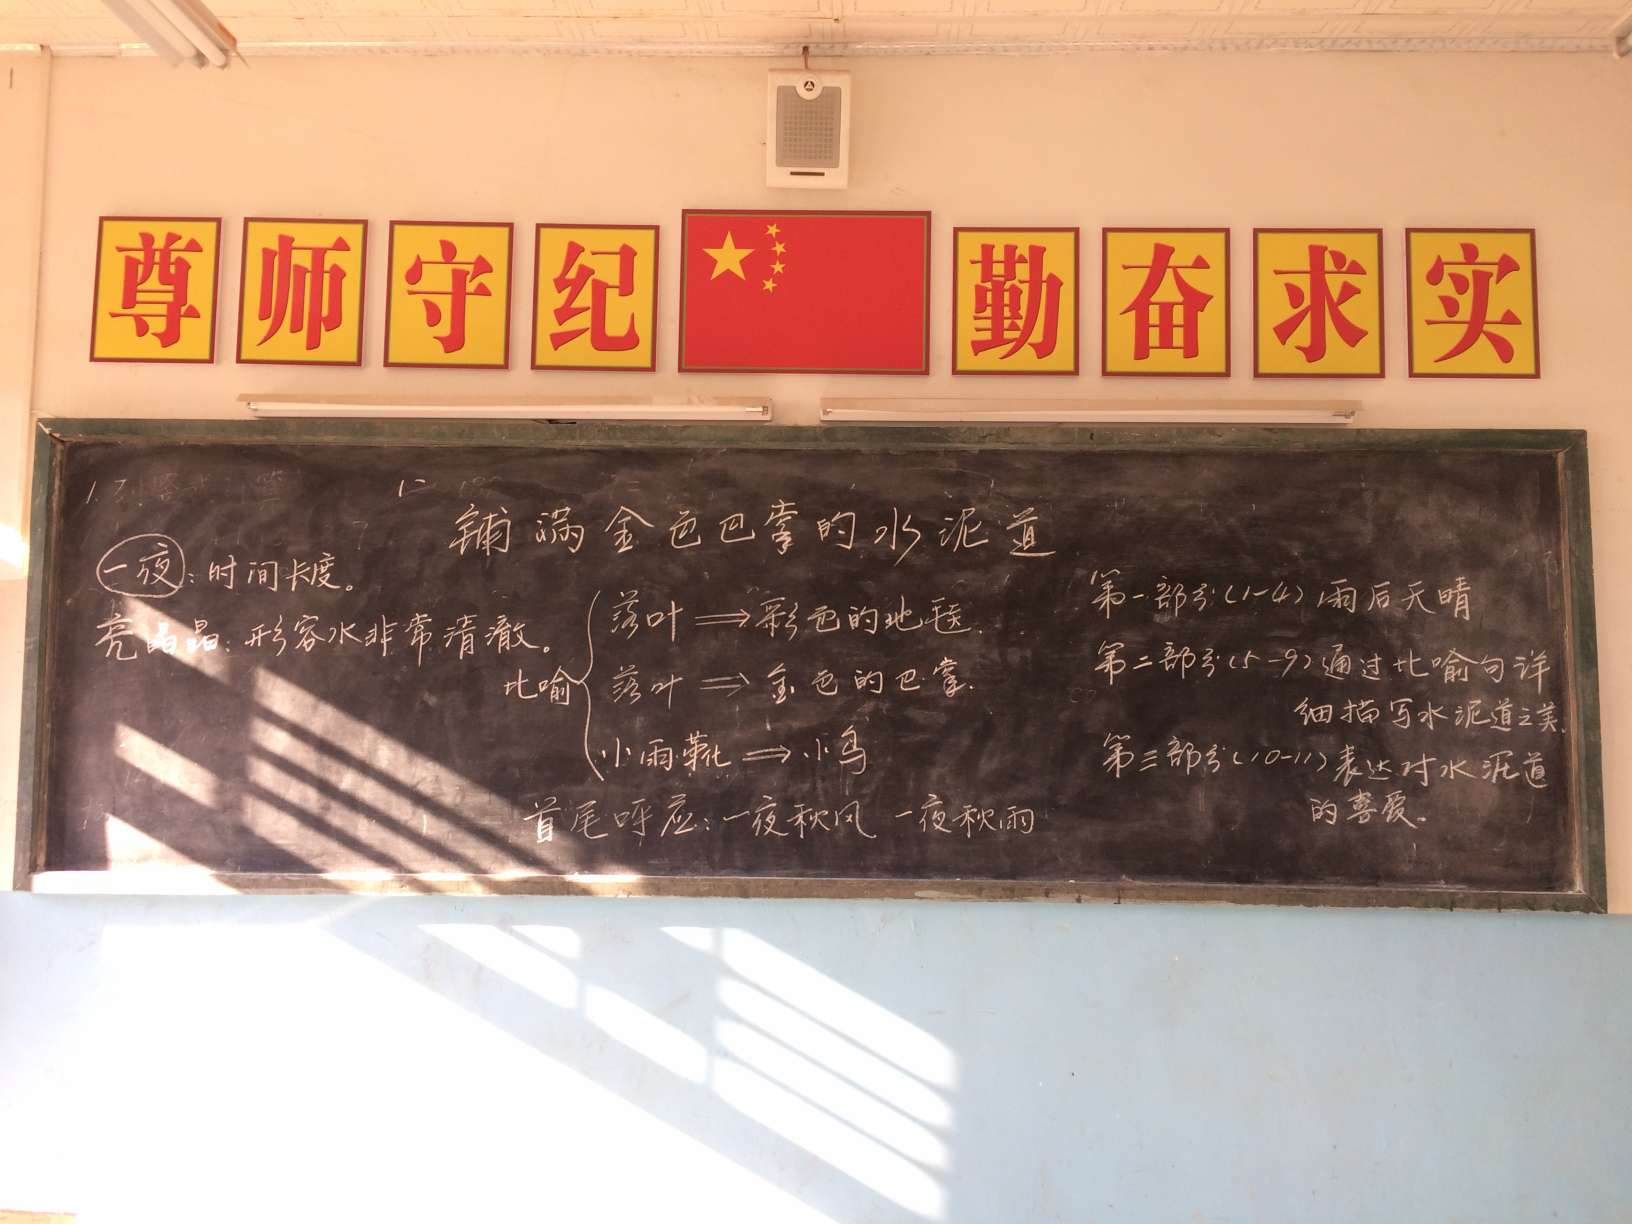 尊师守纪 勤奋求实
铺满金色巴掌的水泥道
一夜：时间长度。
亮晶晶：形容水非常清澈。
比喻
落叶⇒彩色的地毯.
落叶⇒金色的巴掌.
小雨靴⇒小鸟
首尾呼应：一夜秋风 一夜秋雨
第一部分(1-4)雨后天晴
第二部分(5-9)通过比喻句详
细描写水泥道之美.
第三部分(10-11)表达对水泥道
的喜爱。